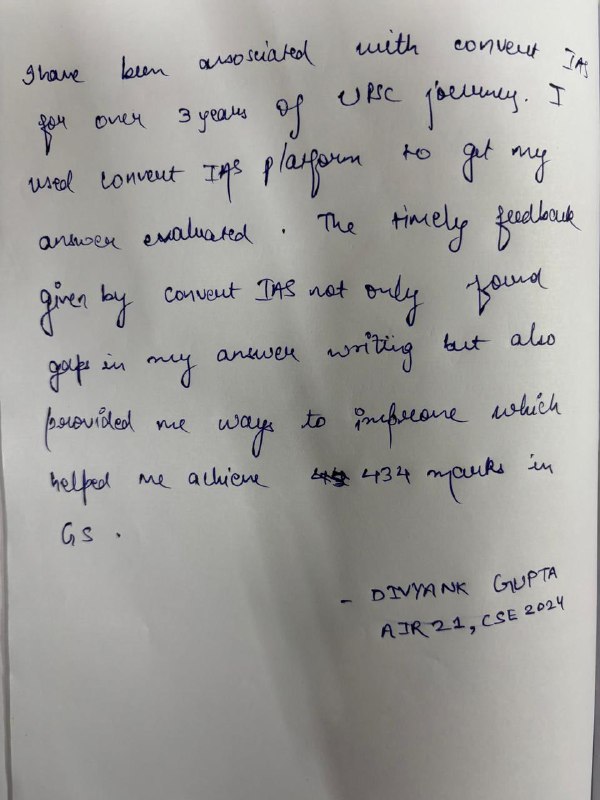 I have been associated with convent IAS
for over 3 years of UPSC journey. I
used convent IAS platform to get my
answer evaluated. The timely feedback
given by convent IAS not only found
gaps in my answer writing but also
provided me ways to improve which
helped me achieve 434 marks in
GS.
- DIVYANK GUPTA
AIR 21, CSE 2024